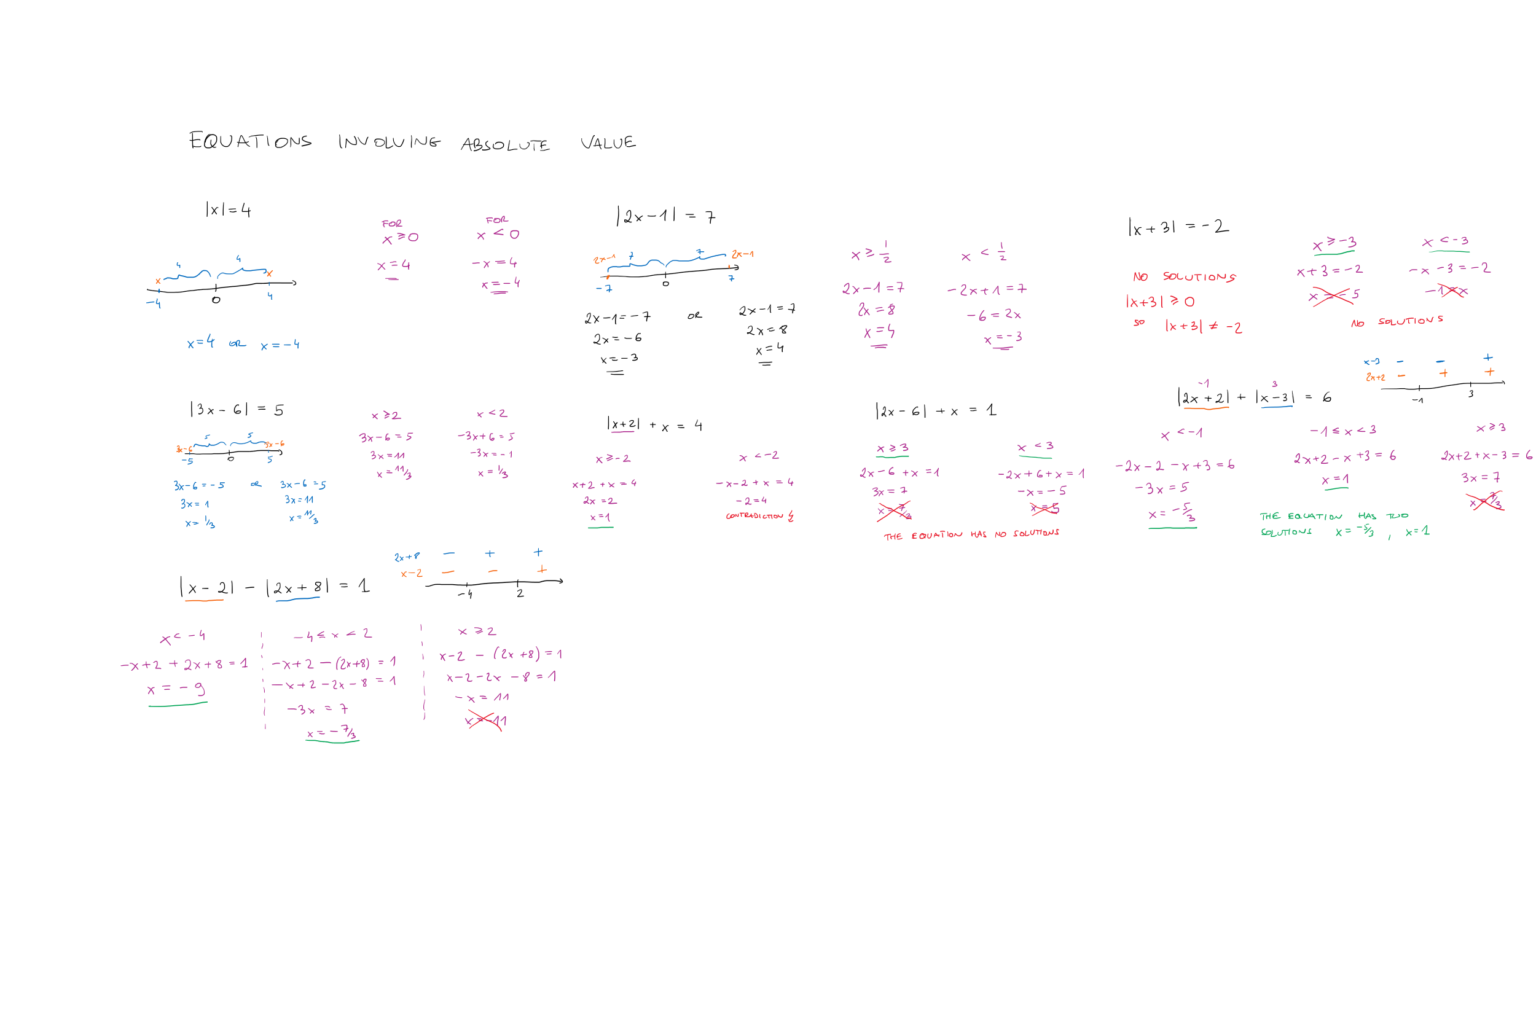 EQUATIONS INVOLVING ABSOLUTE VALUE
|x|=4
4 4
x x
-4 0 4
x=4 OR x=-4
FOR
x≥0
x=4
FOR
x<0
-x=4
x=-4
|2x-1| = 7
2x-1 7 7 2x-1
-7 0 7
2x-1=-7 OR 2x-1=7
2x=-6 2x=8
x=-3 x=4
x≥1/2
2x-1=7
2x=8
x=4
x<1/2
-2x+1=7
-6=2x
x=-3
|x+3| = -2
NO SOLUTIONS
|x+3| ≥ 0
SO |x+3| ≠ -2
x≥-3
x+3=-2
x=-5
x<-3
-x-3=-2
-1=x
NO SOLUTIONS
|3x-6| = 5
3x-6 5 5 3x-6
-5 0 5
3x-6=-5 OR 3x-6=5
3x=1 3x=11
x=1/3 x=11/3
x≥2
3x-6=5
3x=11
x=11/3
x<2
-3x+6=5
-3x=-1
x=1/3
|x+2| + x = 4
x≥-2
x+2+x=4
2x=2
x=1
x<-2
-x-2+x=4
-2=4
CONTRADICTION
|2x-6| + x = 1
x≥3
2x-6+x=1
3x=7
x=7/3
x<3
-2x+6+x=1
-x=-5
x=5
THE EQUATION HAS NO SOLUTIONS
x-3 - - +
2x+2 - + +
-1 3
-1 3
|2x+2| + |x-3| = 6
x<-1
-2x-2-x+3=6
-3x=5
x=-5/3
-1≤x<3
2x+2-x+3=6
x=1
x≥3
2x+2+x-3=6
3x=7
x=7/3
THE EQUATION HAS TWO
SOLUTIONS x=-5/3 , x=1
|x-2| - |2x+8| = 1
2x+8 - + +
x-2 - - +
-4 2
x<-4
-x+2+2x+8=1
x=-9
-4≤x<2
-x+2-(2x+8)=1
-x+2-2x-8=1
-3x=7
x=-7/3
x≥2
x-2-(2x+8)=1
x-2-2x-8=1
-x=11
x=-11